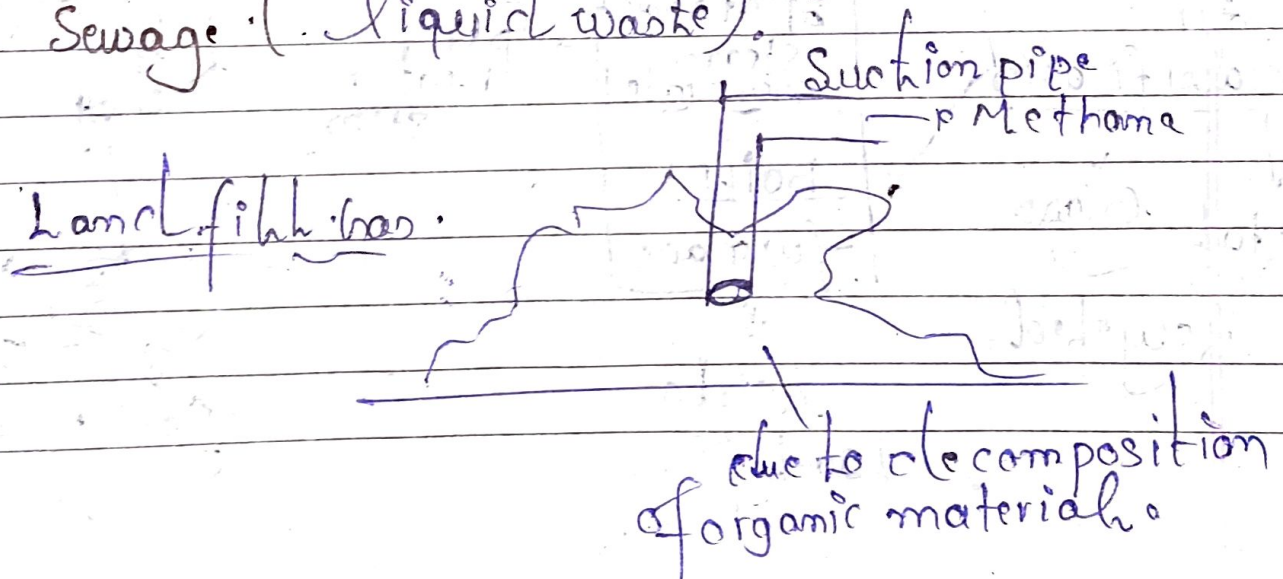 Sewage (liquid waste).
Suction pipe
Methane
Landfill Gas.
due to decomposition
of organic material.